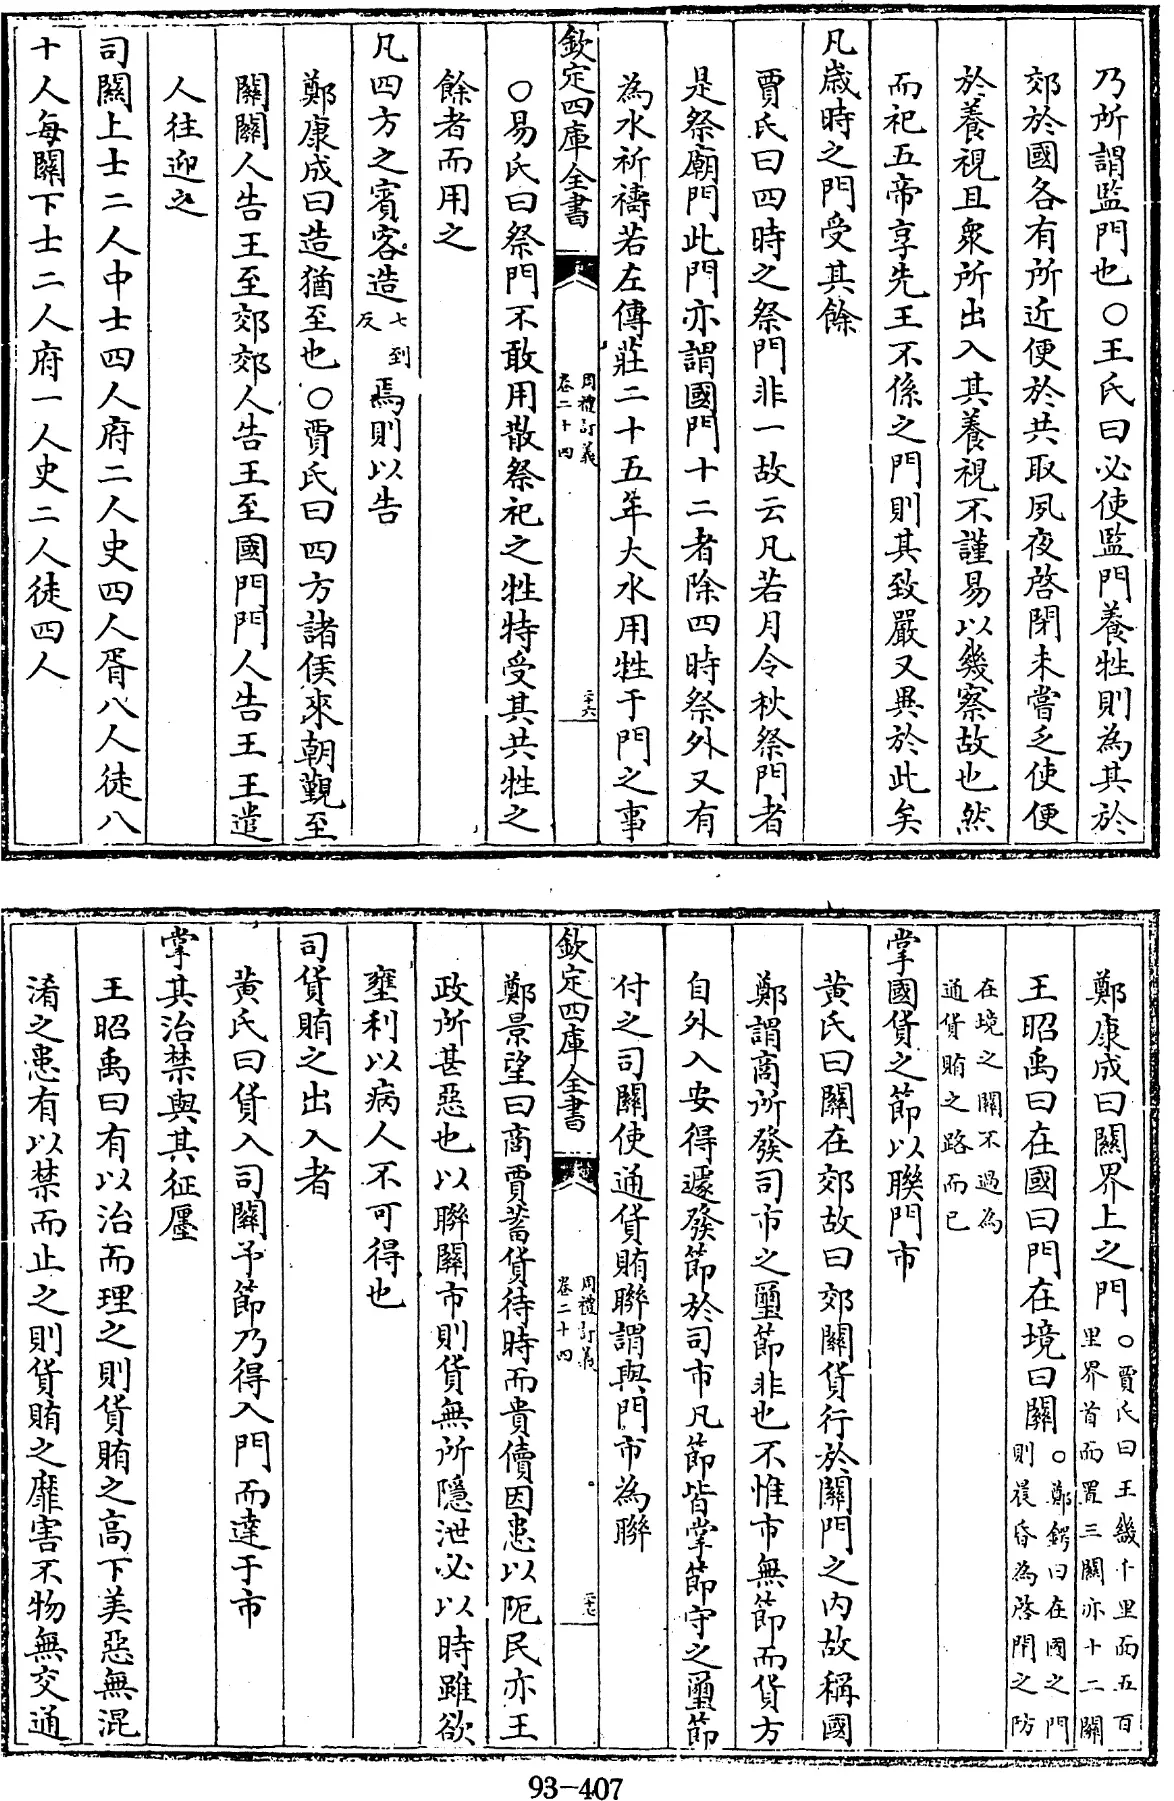 乃所謂監門也○王氏曰必使監門養牲則為其於
郊於國各有所近便於共取夙夜啓閉未嘗乏使便
於養視且衆所出入其養視不謹易以幾察故也然
而祀五帝享先王不係之門則其致嚴又異於此矣
凡歲時之門受其餘
賈氏曰四時之祭門非一故云凡若月令秋祭門者
是祭廟門此門亦謂國門十二者除四時祭外又有
為水祈禱若左傳莊二十五年大水用牲于門之事
欽定四庫全書
周禮訂義
卷二十四
二十六
○易氏曰祭門不敢用散祭祀之牲特受其共牲之
餘者而用之
凡四方之賓客造七到反焉則以告
鄭康成曰造猶至也○賈氏曰四方諸侯來朝覲至
關關人告王至郊郊人告王至國門門人告王王遣
人往迎之
司關上士二人中士四人府二人史四人胥八人徒八
十人每關下士二人府一人史二人徒四人
鄭康成曰關界上之門○賈氏曰王畿千里面五百里界首而置三關亦十二關
王昭禹曰在國曰門在境曰關○鄭鍔曰在國之門則晨昏為啓閉之防
在境之關不過為通貨賄之路而已
掌國貨之節以聨門市
黃氏曰關在郊故曰郊關貨行於關門之内故稱國
鄭謂商所發司市之璽節非也不惟市無節而貨方
自外入安得遽發節於司市凡節皆掌節守之璽節
付之司關使通貨賄聨謂與門市為聨
欽定四庫全書
周禮訂義
卷二十四
二十七
鄭景望曰商賈蓄貨待時而貴儥因患以阨民亦王
政所甚惡也以聨關市則貨無所隱泄必以時雖欲
壅利以病人不可得也
司貨賄之出入者
黃氏曰貨入司關予節乃得入門而達于市
掌其治禁與其征廛
王昭禹曰有以治而理之則貨賄之高下美惡無混
淆之患有以禁而止之則貨賄之靡害不物無交通
93-407